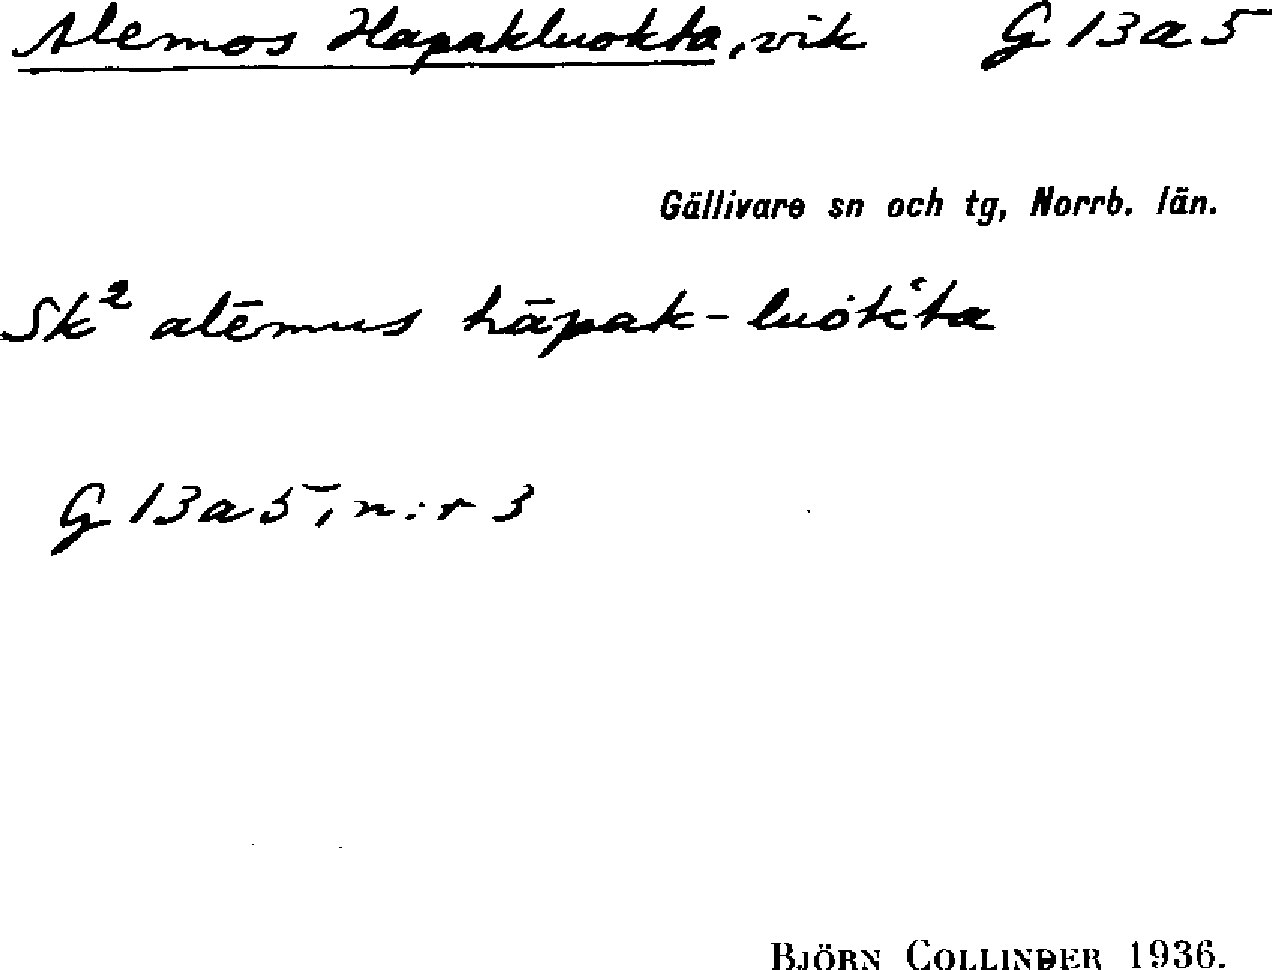 Alemos Hapakluokta, vik G 13 a 5
Gällivare sn och tg, Norrb. län.
Sk² alēmus hāpak-luȯkʿta
G 13 a 5, n:r 3
BJÖRN COLLINDER 1936.